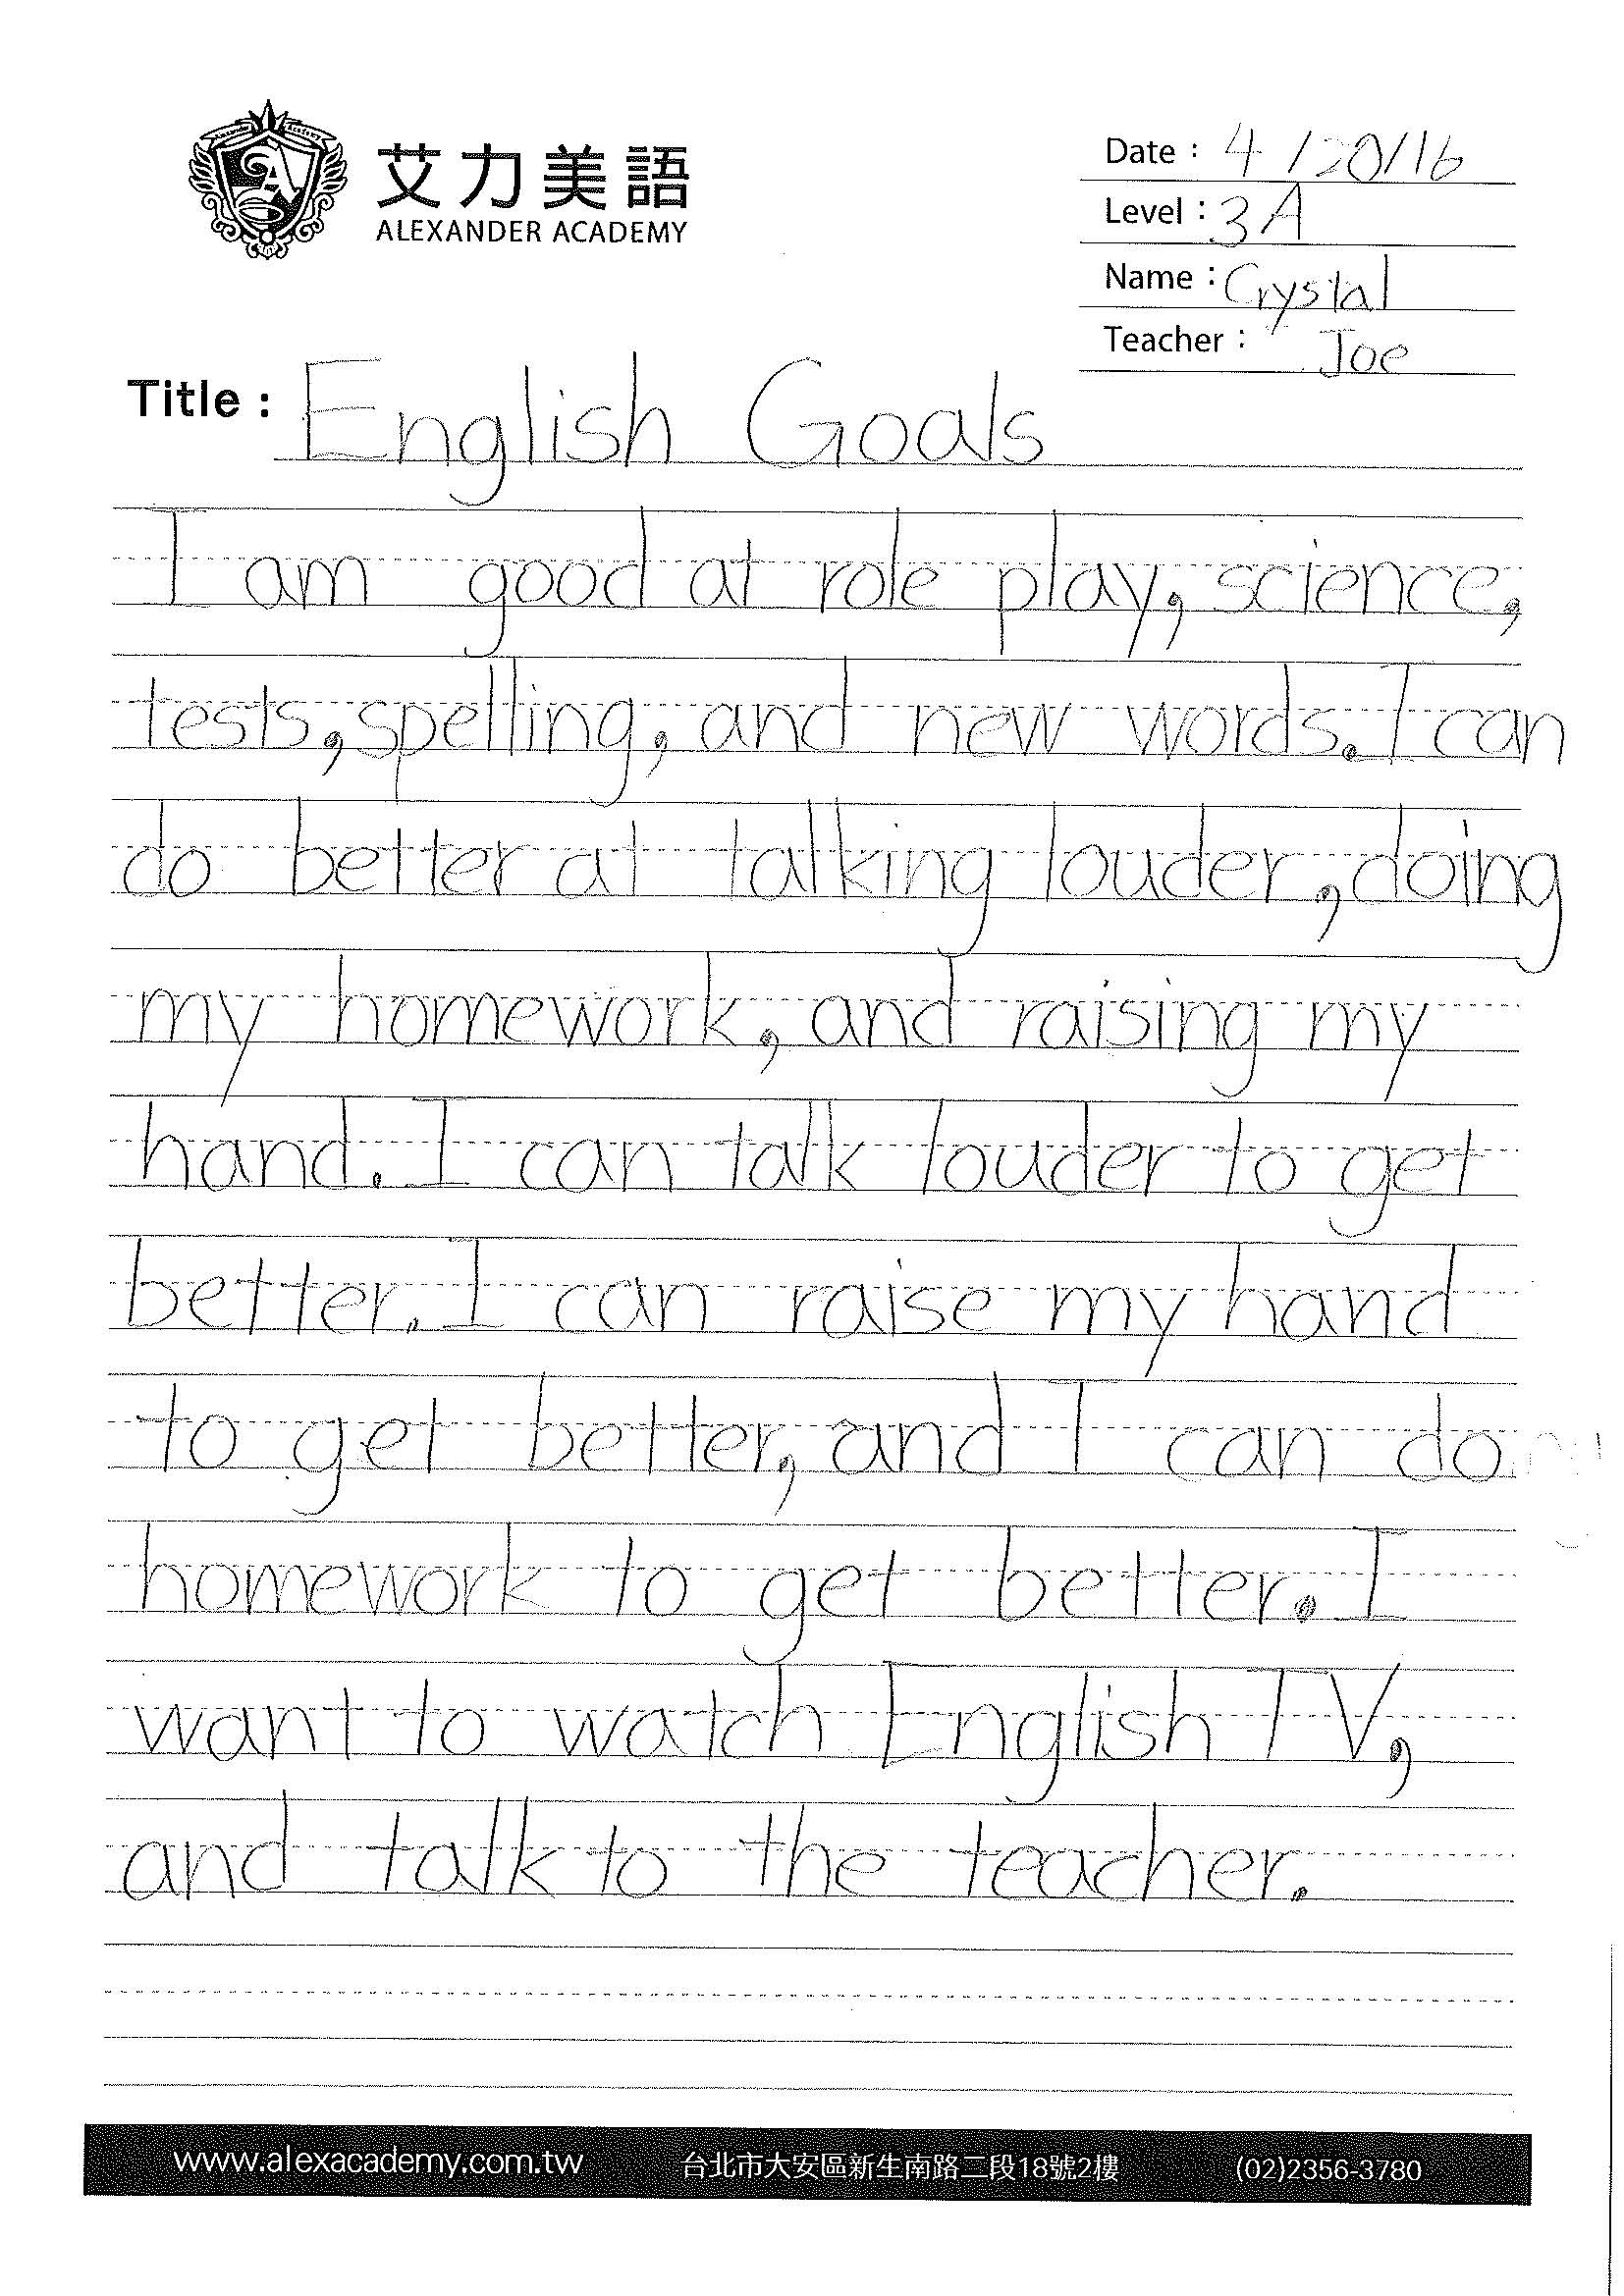 艾力美語
ALEXANDER ACADEMY
Date : 4/20/16
Level : 3A
Name : Crystal
Teacher : Joe
Title : English Goals
I am good at role play, science,
tests, spelling, and new words. I can
do better at talking louder, doing
my homework, and raising my
hand. I can talk louder to get
better. I can raise my hand
to get better, and I can do
homework to get better. I
want to watch English TV,
and talk to the teacher.
www.alexacademy.com.tw 台北市大安區新生南路二段18號2樓 (02)2356-3780